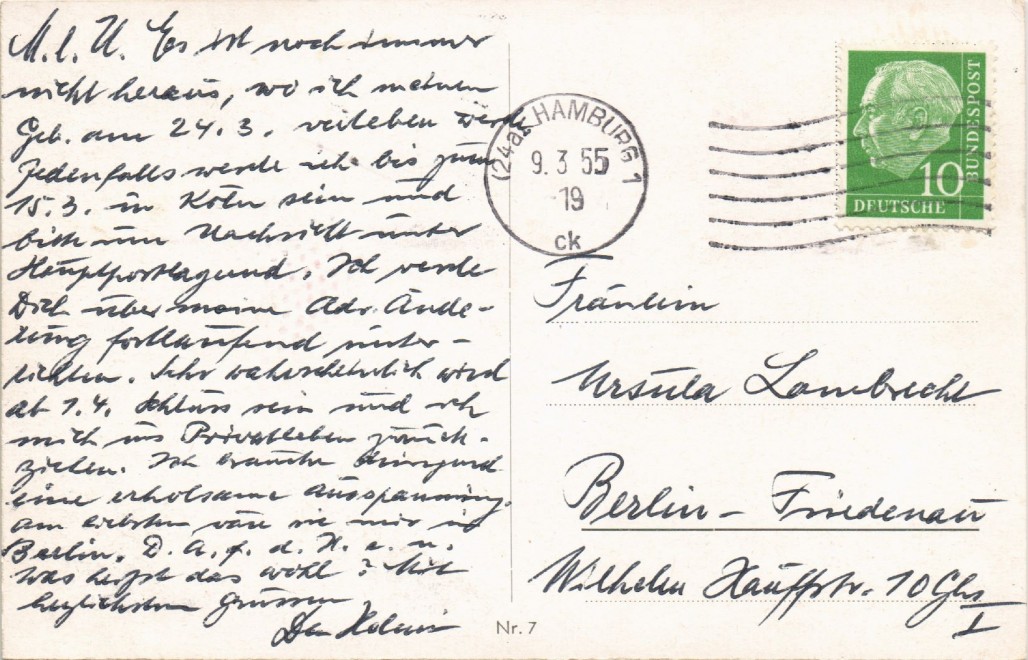 M. l. U. Es ist noch immer
nicht heraus, wo ich meinen
Geb. am 24.3. verleben werde
Jedenfalls werde ich bis zum
15.3. in Köln sein und
bitte um Nachricht unter
Hauptpostlagernd. Ich werde
Dich über meine Adr. Ände-
rung fortlaufend unter-
richten. Sehr wahrscheinlich wird
ab 1.4. Schluss sein und ich
mich ins Privatleben zurück-
ziehen. Ich brauche dringend
eine erholsame Ausspannung.
Am liebsten wäre sie mir in
Berlin. D. A. f. d. H. e. n.
Was heißt das wohl? Mit
herzlichsten Grüssen
Dein
Nr. 7
(24a) HAMBURG 1
9.3.55
19
ck
10
DEUTSCHE
BUNDESPOST
Fräulein
Ursula Lambrecht
Berlin - Friedenau
Wilhelm Hauffstr. 10 Ghs
I